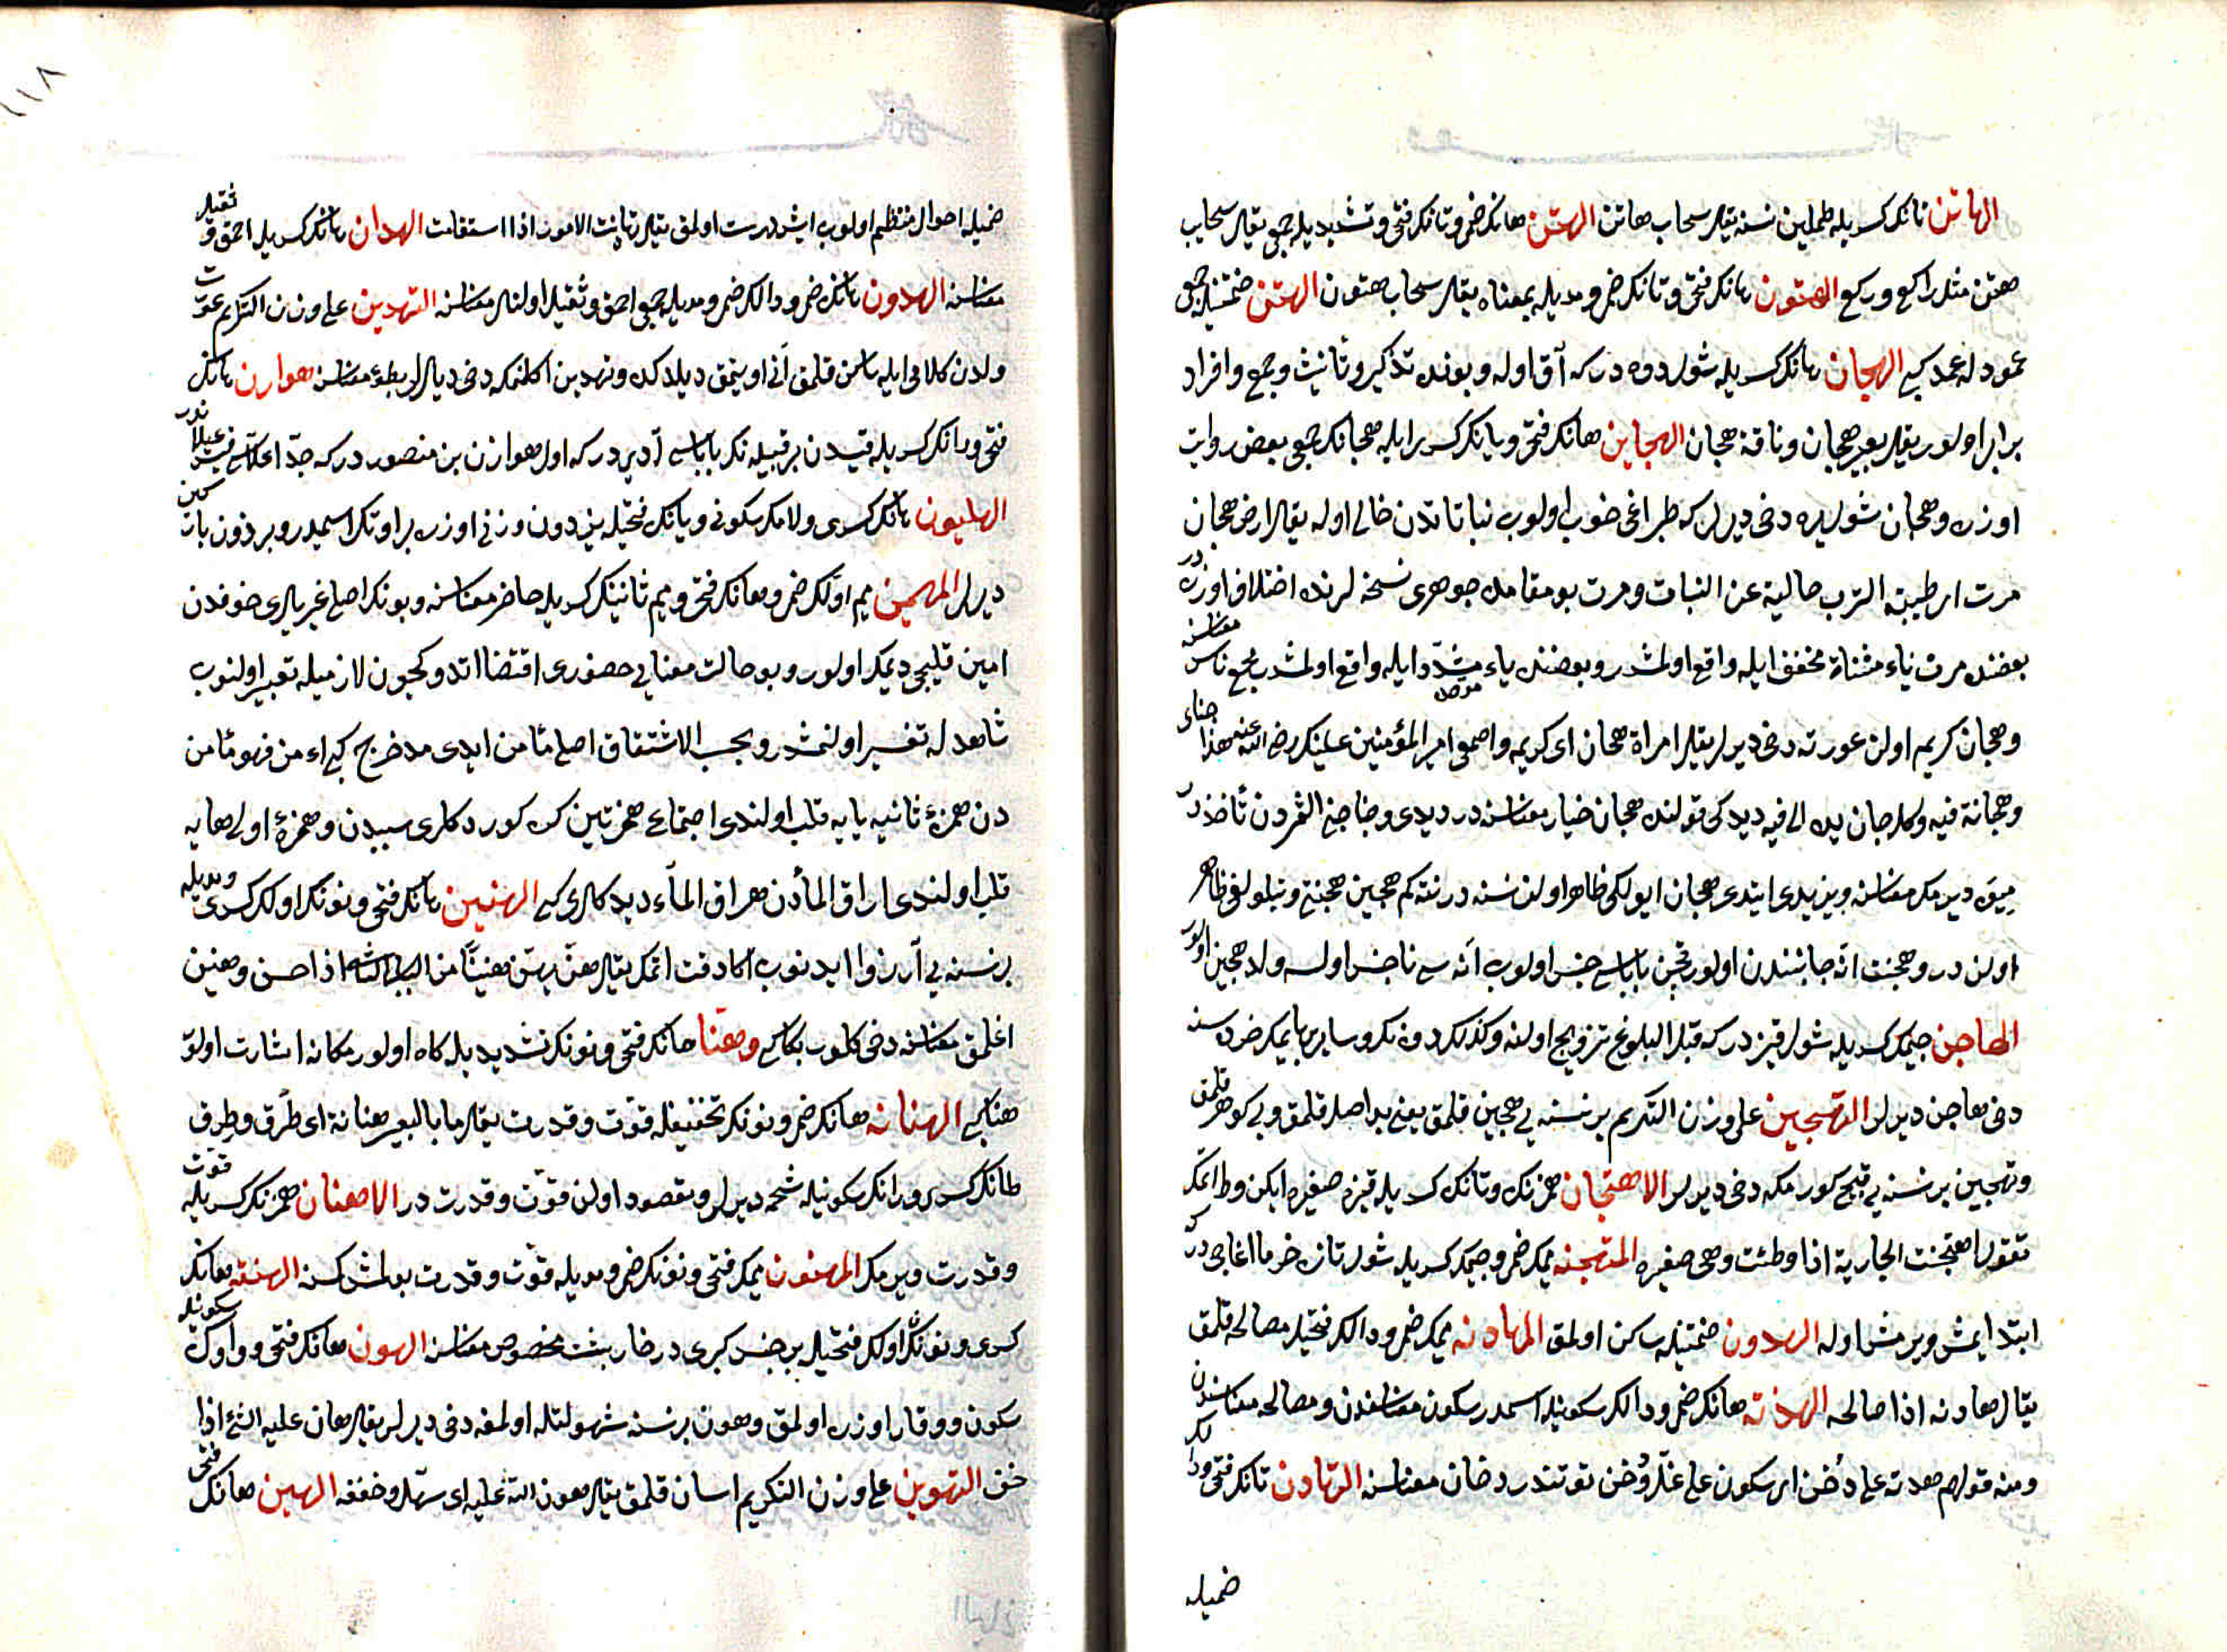 الهاتن تانك كسريله طملاين نسنه يقال سحاب هاتن الهتن هانك ضمى و تانك فتحى و تشديديله جمعى يقال سحايب
هتن مثل راكع و ركع الهتون هانك فتحى و تانك ضمى و مديله بمعناه يقال سحاب هتون الهتن ضمتيله جمعى
عمود له عمد كبى الهجان هانك كسريله شول دوه در كه آق اوله و بونده تذكير و تأنيث و جمع و افراد
برابر اولور يقال بعير هجان و ناقة هجان الهجاين هانك فتحى و يانك كسرايله هجانك جمعى بعض روايت
اوزره و هجان شول يره دخى ديرلر كه طپراغى خوب اولوب نباتاتدن خالى اوله يقال ارض هجان
مرت اى طيبة الترب خالية عن النبات و مرت بو مقامده جوهرى نسخه لرنده اختلاف اوزره در
بعضنده مرت ياء مثناة مخفف ايله واقع اولمشدر و بعضنده ياء مشدد ايله واقع اولمشدر
و هجان كريم اولن عورته دخى ديرلر يقال امراة هجان اى كريمه امير المؤمنين على رضى الله عنه هذا جناى
و هجانه فيه و كل جان يده الى فيه ديدكى قولنده هجان خيار معناسنه در ديدى
ديمك معناسنه ويزيدى ايتدى هجان ايولكى ظاهر اولن نسنه در نته كم هجين هجنتى ظاهر
اولن در و هجنت انه جانبندن اولور قچن باباسى جنس اولوب آنه سى ناجنس اولسه ولد هجين اولور
الهاجن جيمك كسريله شول قيز در كه قبل البلوغ تزويج اولنه و كذلك دوه نك و ساير بهايمك خرده سنه
دخى هاجن ديرلر التهجين على وزن التكريم بر نسنه يى هجين قلمق يعنى بد اصل قلمق و بى كوهر قلمق
و تهجين بر نسنه يى قبيح كورمكه دخى ديرلر الاهتجان همزنك و تانك كسريله قيزه صغيره ايكن وطئ اتمك
تقول اهتجنت الجارية اذا وطئت و هى صغيره المتهجنه ميمك ضمى و جيمك كسريله شول تازه خرما اغاجى در كه
ابتدا يمش ويرمش اوله الهدون ضمتيله ساكن اولمق المهادنه ميمك ضمى و دالك فتحيله مصالحه قلمق
يقال هادنه اذا صالحه الهدنة هانك ضمى و دالك سكونيله اسمدر سكون معناسندن و مصالحه معناسندن
و منه قولهم هدنة على دخن اى سكون على غل و دخن توتندر دخان معناسنه التهادن تانك فتحى و دالك
ضميله
١١٨
ضميله احوال منتظم اولوب ايش درست اولمق يقال تهادنت الامور اذا استقامت الهدان هانك كسريله احمق و ثقيل
معناسنه الهدون هانك ضمى و دالك ضمى و مديله جمعى احمق و ثقيل اولنلر معناسنه التهدين على وزن التكريم عورت
ولدن كلامى ايله ساكن قلمق آنى اويتمق ديلدكده و تهدين اكلنمكه دخى ديرلر بطؤ معناسنه هوازن هانك
فتحى و زانك كسريله قيسدن بر قبيله نك باباسى آديدر كه اول هوازن بن منصور در كه جد اعلاسى قيس عيلاندر
الهليون هانك كسرى و لامك سكونى و يانك فتحيله بزدون وزنى اوزره بر اوتك اسميدر
ديرلر المهيمن ميم اولك ضمى و هانك فتحى و ميم ثانينك كسريله حاضر معناسنه و بونك اصلى غيريلرى خوفدن
امين قليجى ديمك اولور و بو حالت معنايى حضورى اقتضا اتدوكيچون لازميله تعبير اولنوب
شاهد له تفسير اولنمشدر و بحسب الاشتقاق اصلى مأمن ايدى مدخرج كبى اءمن فهو مأمن
دن همزۀ ثانيه يايه قلب اولندى اجتماع همزتين كريه كورد كلرى سببدن و همزۀ اولى هايه
قلب اولندى اراق المأدن هراق الماء ديدكلرى كبى الهنين هانك فتحى و نونك اولك كسرى و مديله
بر نسنه يى آرزو ايدنوب اكا رقت اتمك يقال هن يهن هنينا اذا حن و هنين
اغلمق معناسنه دخى كلوب بكا كبى و هنا هانك فتحى و نونك تشديديله كاه اولور مكانه اشارت اولور
هنا كبى الهنانه هانك ضمى و نونك تخفيفله قوت و قدرت يقال ما بالبعير هنانة اى طرق و طرق
طانك كسرى و رانك سكونيله شحمه ديرلر و مقصود اولن قوت و قدرت در الاهنان همزنك كسريله قوت
و قدرت ويرمك المهنون ميمك فتحى و نونك ضمى و مديله قوت و قدرت بولمش كسنه الهننه هانك
كسرى و نونك اولك فتحيله بر جنس كرپى در خارپشت مخصوص معناسنه الهون هانك فتحى و واوك سكونيله
سكون و وقار اوزره اولمق و هون بر نسنه سهولتله اولمغه دخى ديرلر يقال هان عليه الشئ اذا
خف التهوين على وزن التكريم اسان قلمق يقال هون الله عليه اى سهله و خففه الهين هانك فتحى